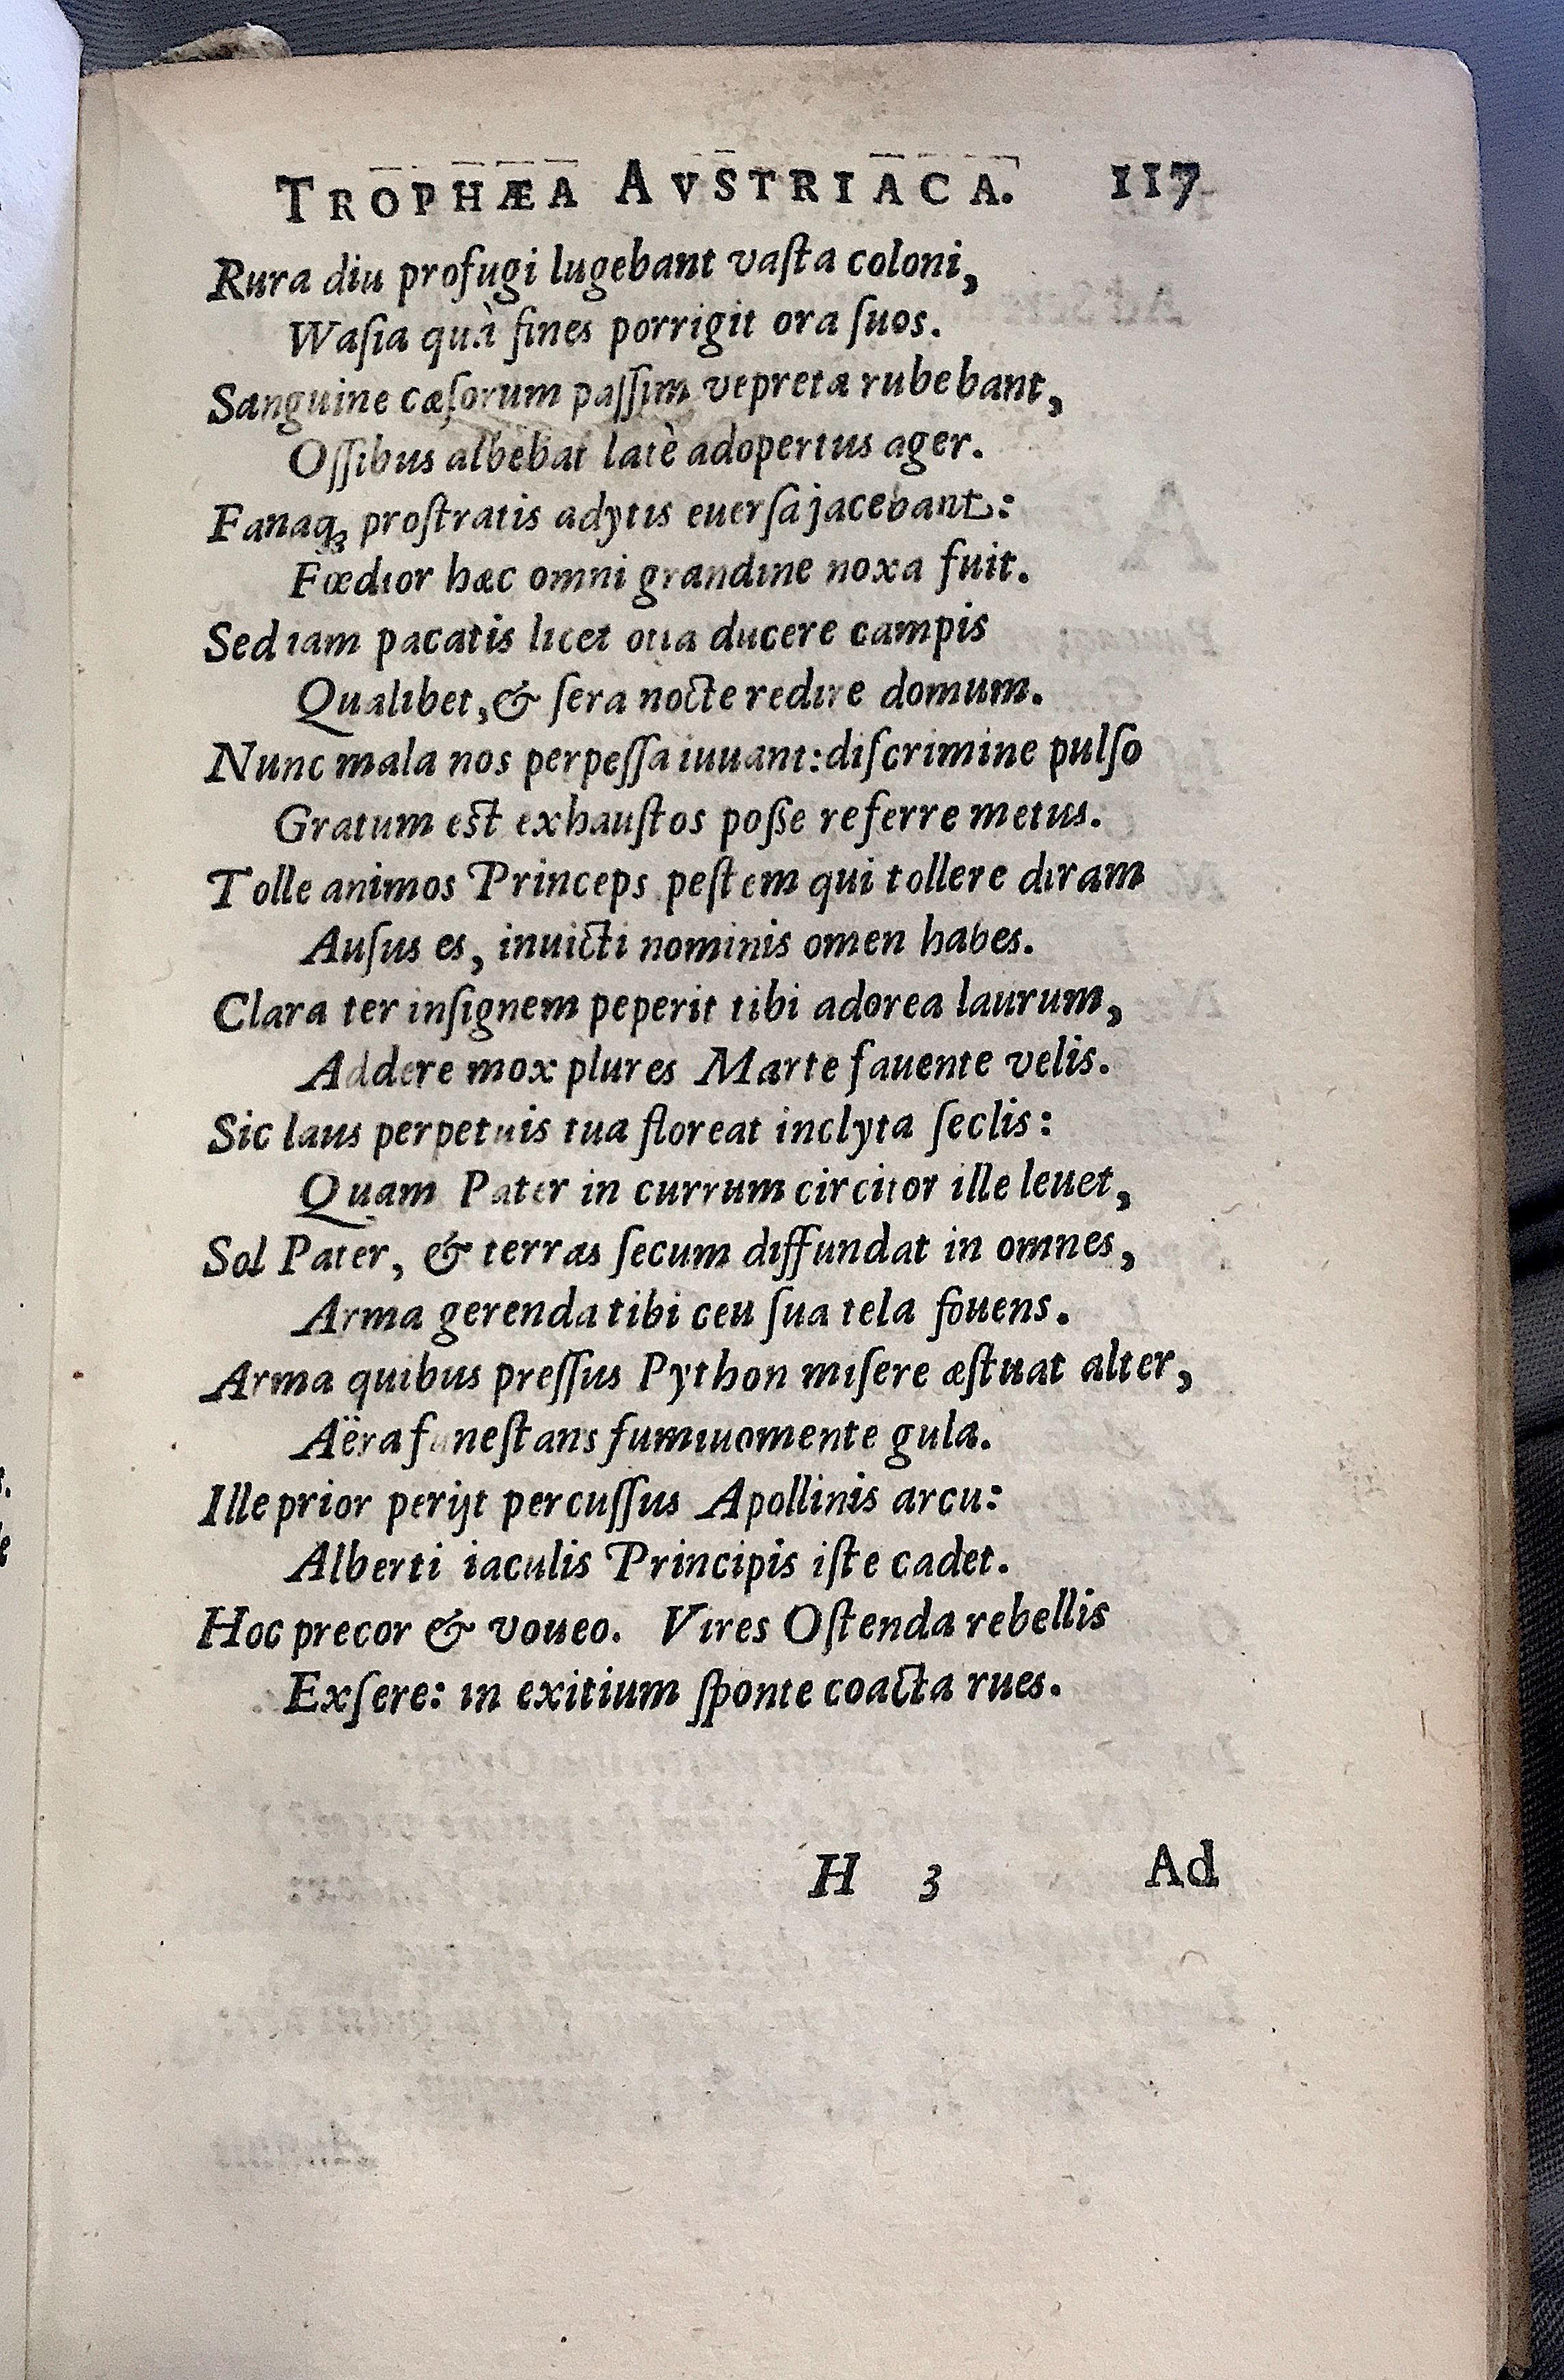 TROPHÆA AVSTRIACA. 117
Rura diu profugi lugebant vaſta coloni,
Waſia quà fines porrigit ora ſuos.
Sanguine cæſorum paſſim vepreta rubebant,
Oſſibus albebat latè adopertus ager.
Fanaq; proſtratis adytis euerſa jacebant:
Fœdior hæc omni grandine noxa fuit.
Sed iam pacatis licet otia ducere campis
Qualibet, & ſera nocte redire domum.
Nunc mala nos perpeſſa iuuant: diſcrimine pulſo
Gratum est exhauſtos poſſe referre metus.
Tolle animos Princeps peſtem qui tollere diram
Auſus es, inuicti nominis omen habes.
Clara ter inſignem peperit tibi adorea laurum,
Addere mox plures Marte fauente velis.
Sic laus perpetuis tua floreat inclyta ſeclis:
Quam Pater in currum circitor ille leuet,
Sol Pater, & terras ſecum diffundat in omnes,
Arma gerenda tibi ceu ſua tela fouens.
Arma quibus preſſus Python miſere æſtuat alter,
Aëra funeſtans fumiuomente gula.
Ille prior perijt percuſſus Apollinis arcu:
Alberti iaculis Principis iſte cadet.
Hoc precor & voueo. Vires Oſtenda rebellis
Exſere: in exitium ſponte coacta rues.
H 3 Ad